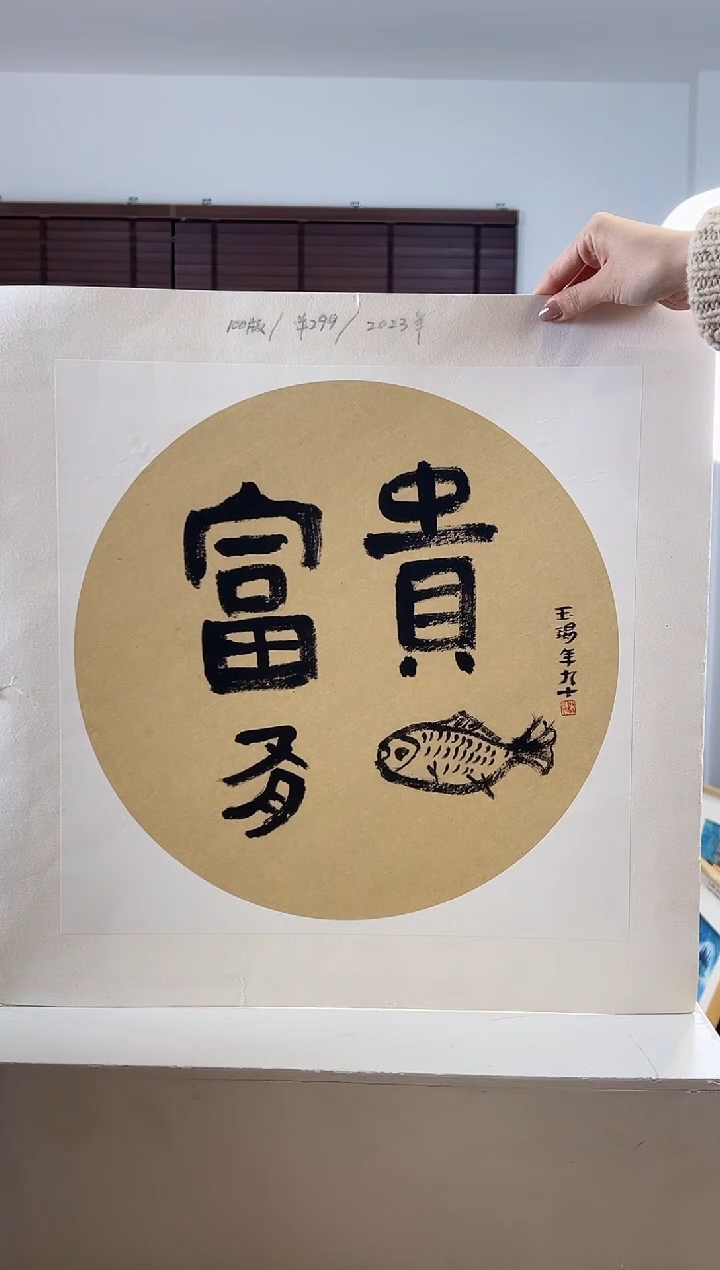 100版/ 单299/ 2023年
富貴
有
玉瑒年九十